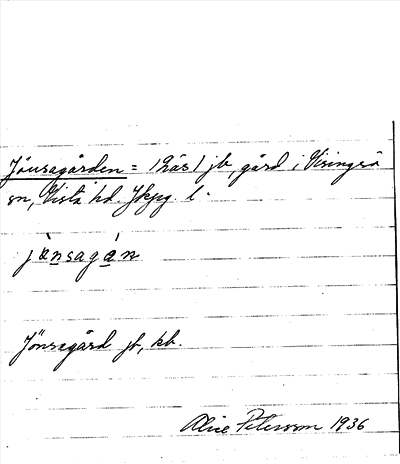 Jönsagården = (Näs) jb, gård i Visingsö
sn, Vista hd. Jkpg. l.
jònsagán
Jönsagård jb, kb.
Alice Petersson 1936